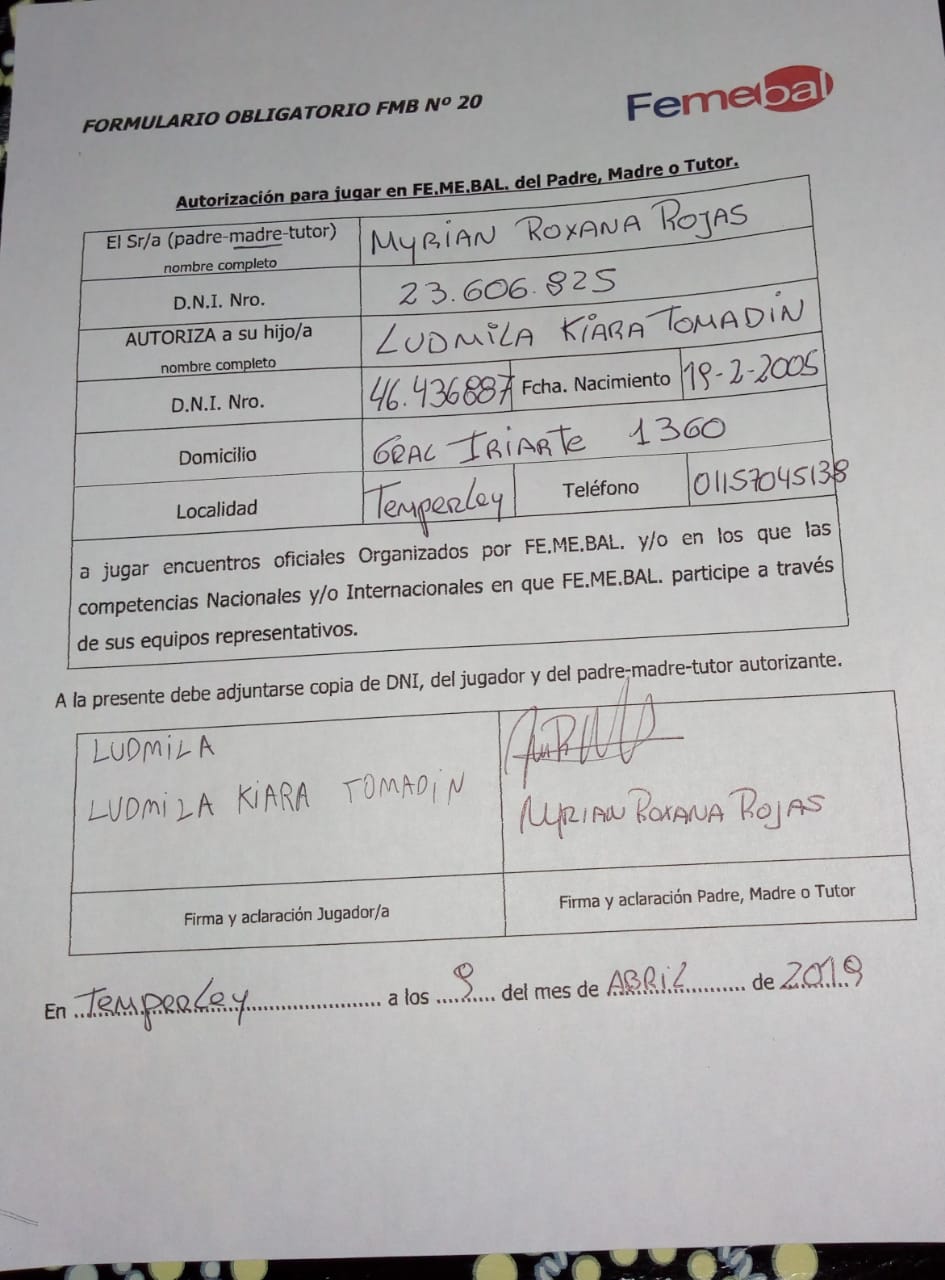 FORMULARIO OBLIGATORIO FMB Nº 20
Femebal
Autorización para jugar en FE.ME.BAL. del Padre, Madre o Tutor.
El Sr/a (padre-madre-tutor)
nombre completo
MyRiAN ROXANA ROJAS
D.N.I. Nro.
23.606.825
AUTORIZA a su hijo/a
nombre completo
LUDMiLA KiARA TOMADiN
D.N.I. Nro.
46.436887
Fcha. Nacimiento
19-2-2005
Domicilio
GRAL IRiARTe 1360
Localidad
Temperley
Teléfono
01157045138
a jugar encuentros oficiales Organizados por FE.ME.BAL. y/o en los que las
competencias Nacionales y/o Internacionales en que FE.ME.BAL. participe a través
de sus equipos representativos.
A la presente debe adjuntarse copia de DNI, del jugador y del padre-madre-tutor autorizante.
LUDMiLA
LUDMiLA KiARA TOMADiN
MyRIAN ROXANA ROJAS
Firma y aclaración Jugador/a
Firma y aclaración Padre, Madre o Tutor
En Temperley a los 9 del mes de ABRiL de 2019